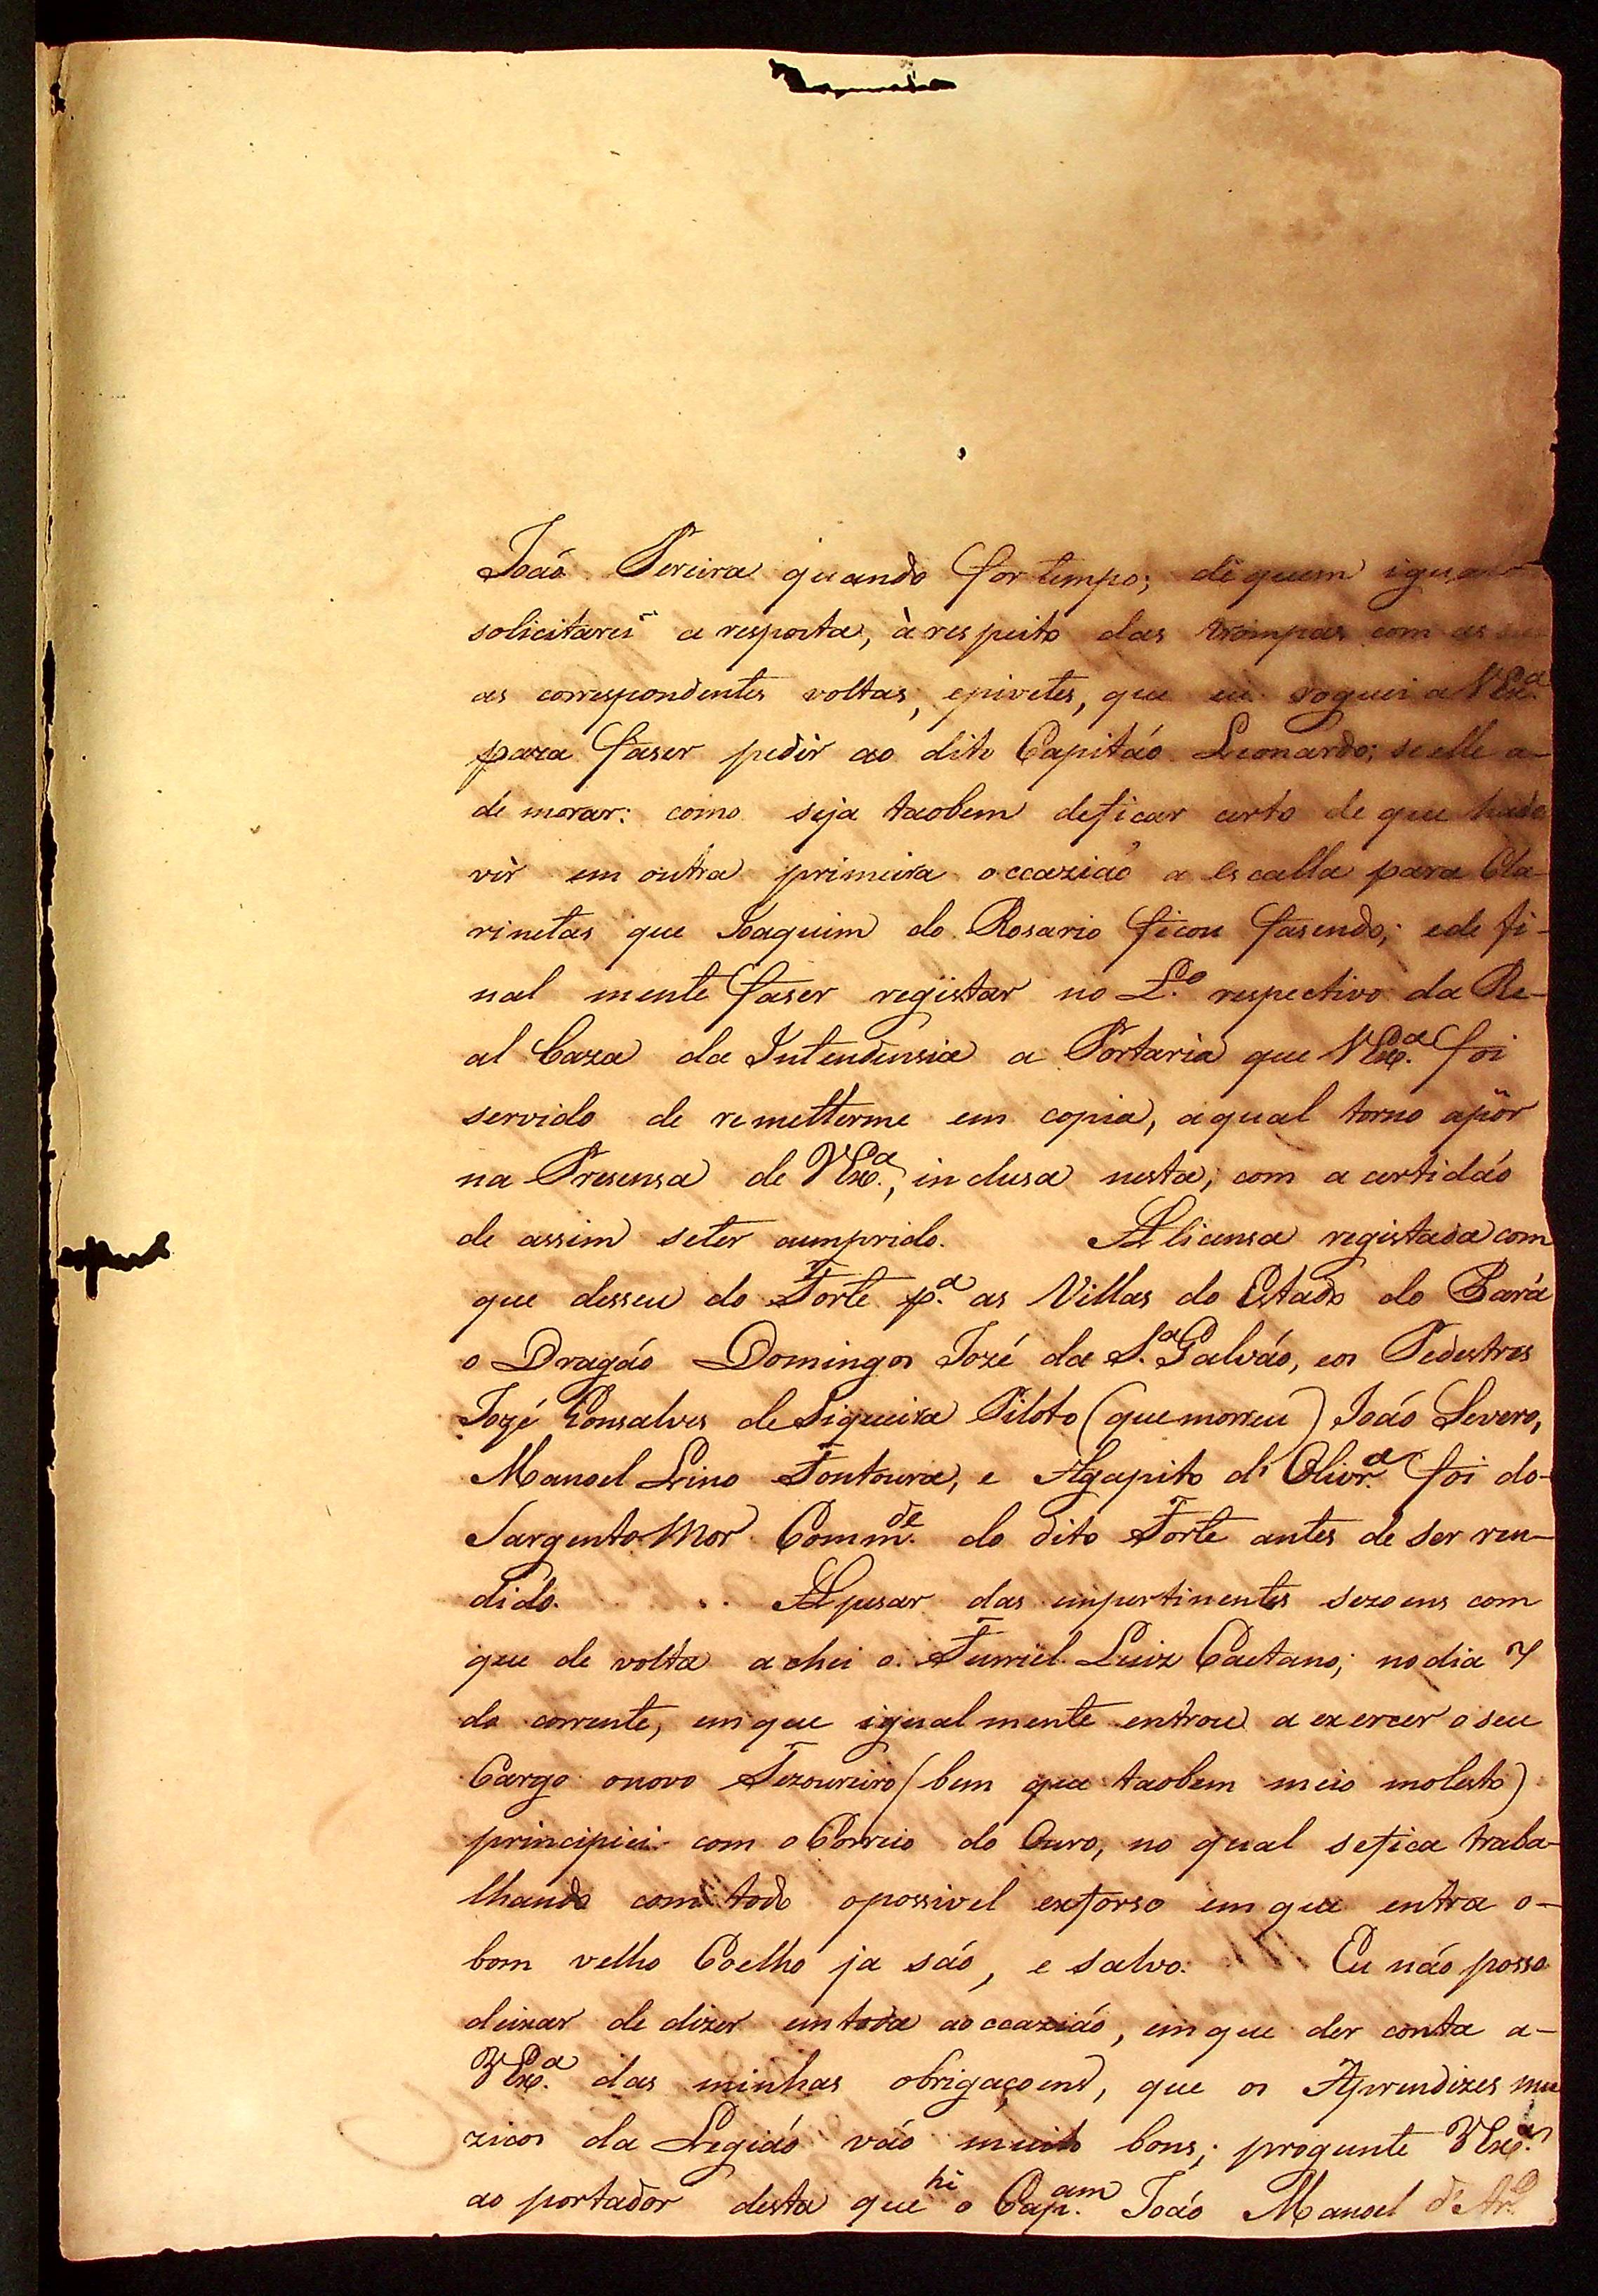 João Pereira quando for tempo; de quem igual
solicitarei a resposta, à respeito das trompas com as
as correspondentes voltas, epivetes, que eu roguei a VExª
para faser pedir ao dito Capitaó Leonardo; se elle a-
de morar: como seja taobem deficar certo de que hade
vir em outra primeira occaziaõ a escalla para Cla-
rinetas que Joaquim do Rosario ficou fasendo; ede fi-
nal mente faser registar no L.º respectivo da Re-
al Caza da Intendensia a Portaria que VExª. foi
servido de remetterme em copia, aqual torno apôr
na Presensa de VExª., inclusa nesta; com a certidaó
de assim seter cumprido. A licensa registada com
que desseu do Forte p.ª as Villas do Estado do Pará
o Dragaó Domingos Jozé da S.ª Galvaó, eos Pedestres
Jozé Gonsalves de Siqueira Piloto (que morreu) Joaó Severo,
Manoel Lino Fontoura, e Agapito d' Olivr.ª foi do-
Sargento Mor Comm.de do dito Forte antes de ser ren-
dido. Apesar das impertinentes sezoens com
que de volta achei o Furriel Luiz Caetano; nodia 7
do corrente, emque igualmente entrou a exercer o seu
Cargo onovo Tezoureiro (bem que taobem meio molesto)
principiei com o Correio do Ouro, no qual sefica traba-
lhando com todo opossivel exforso em que entra o-
bom velho Coelho ja saó, e salvo. Eu naó posso
deixar de dizer emtoda aoccaziaó, emque der conta a-
VExª. das minhas obrigaçoens, que os Aprendizes mu
zicos da Legiaó vaó muito bons; progunte VExª.
ao portador desta que hi o Cap.am Joaó Manoel